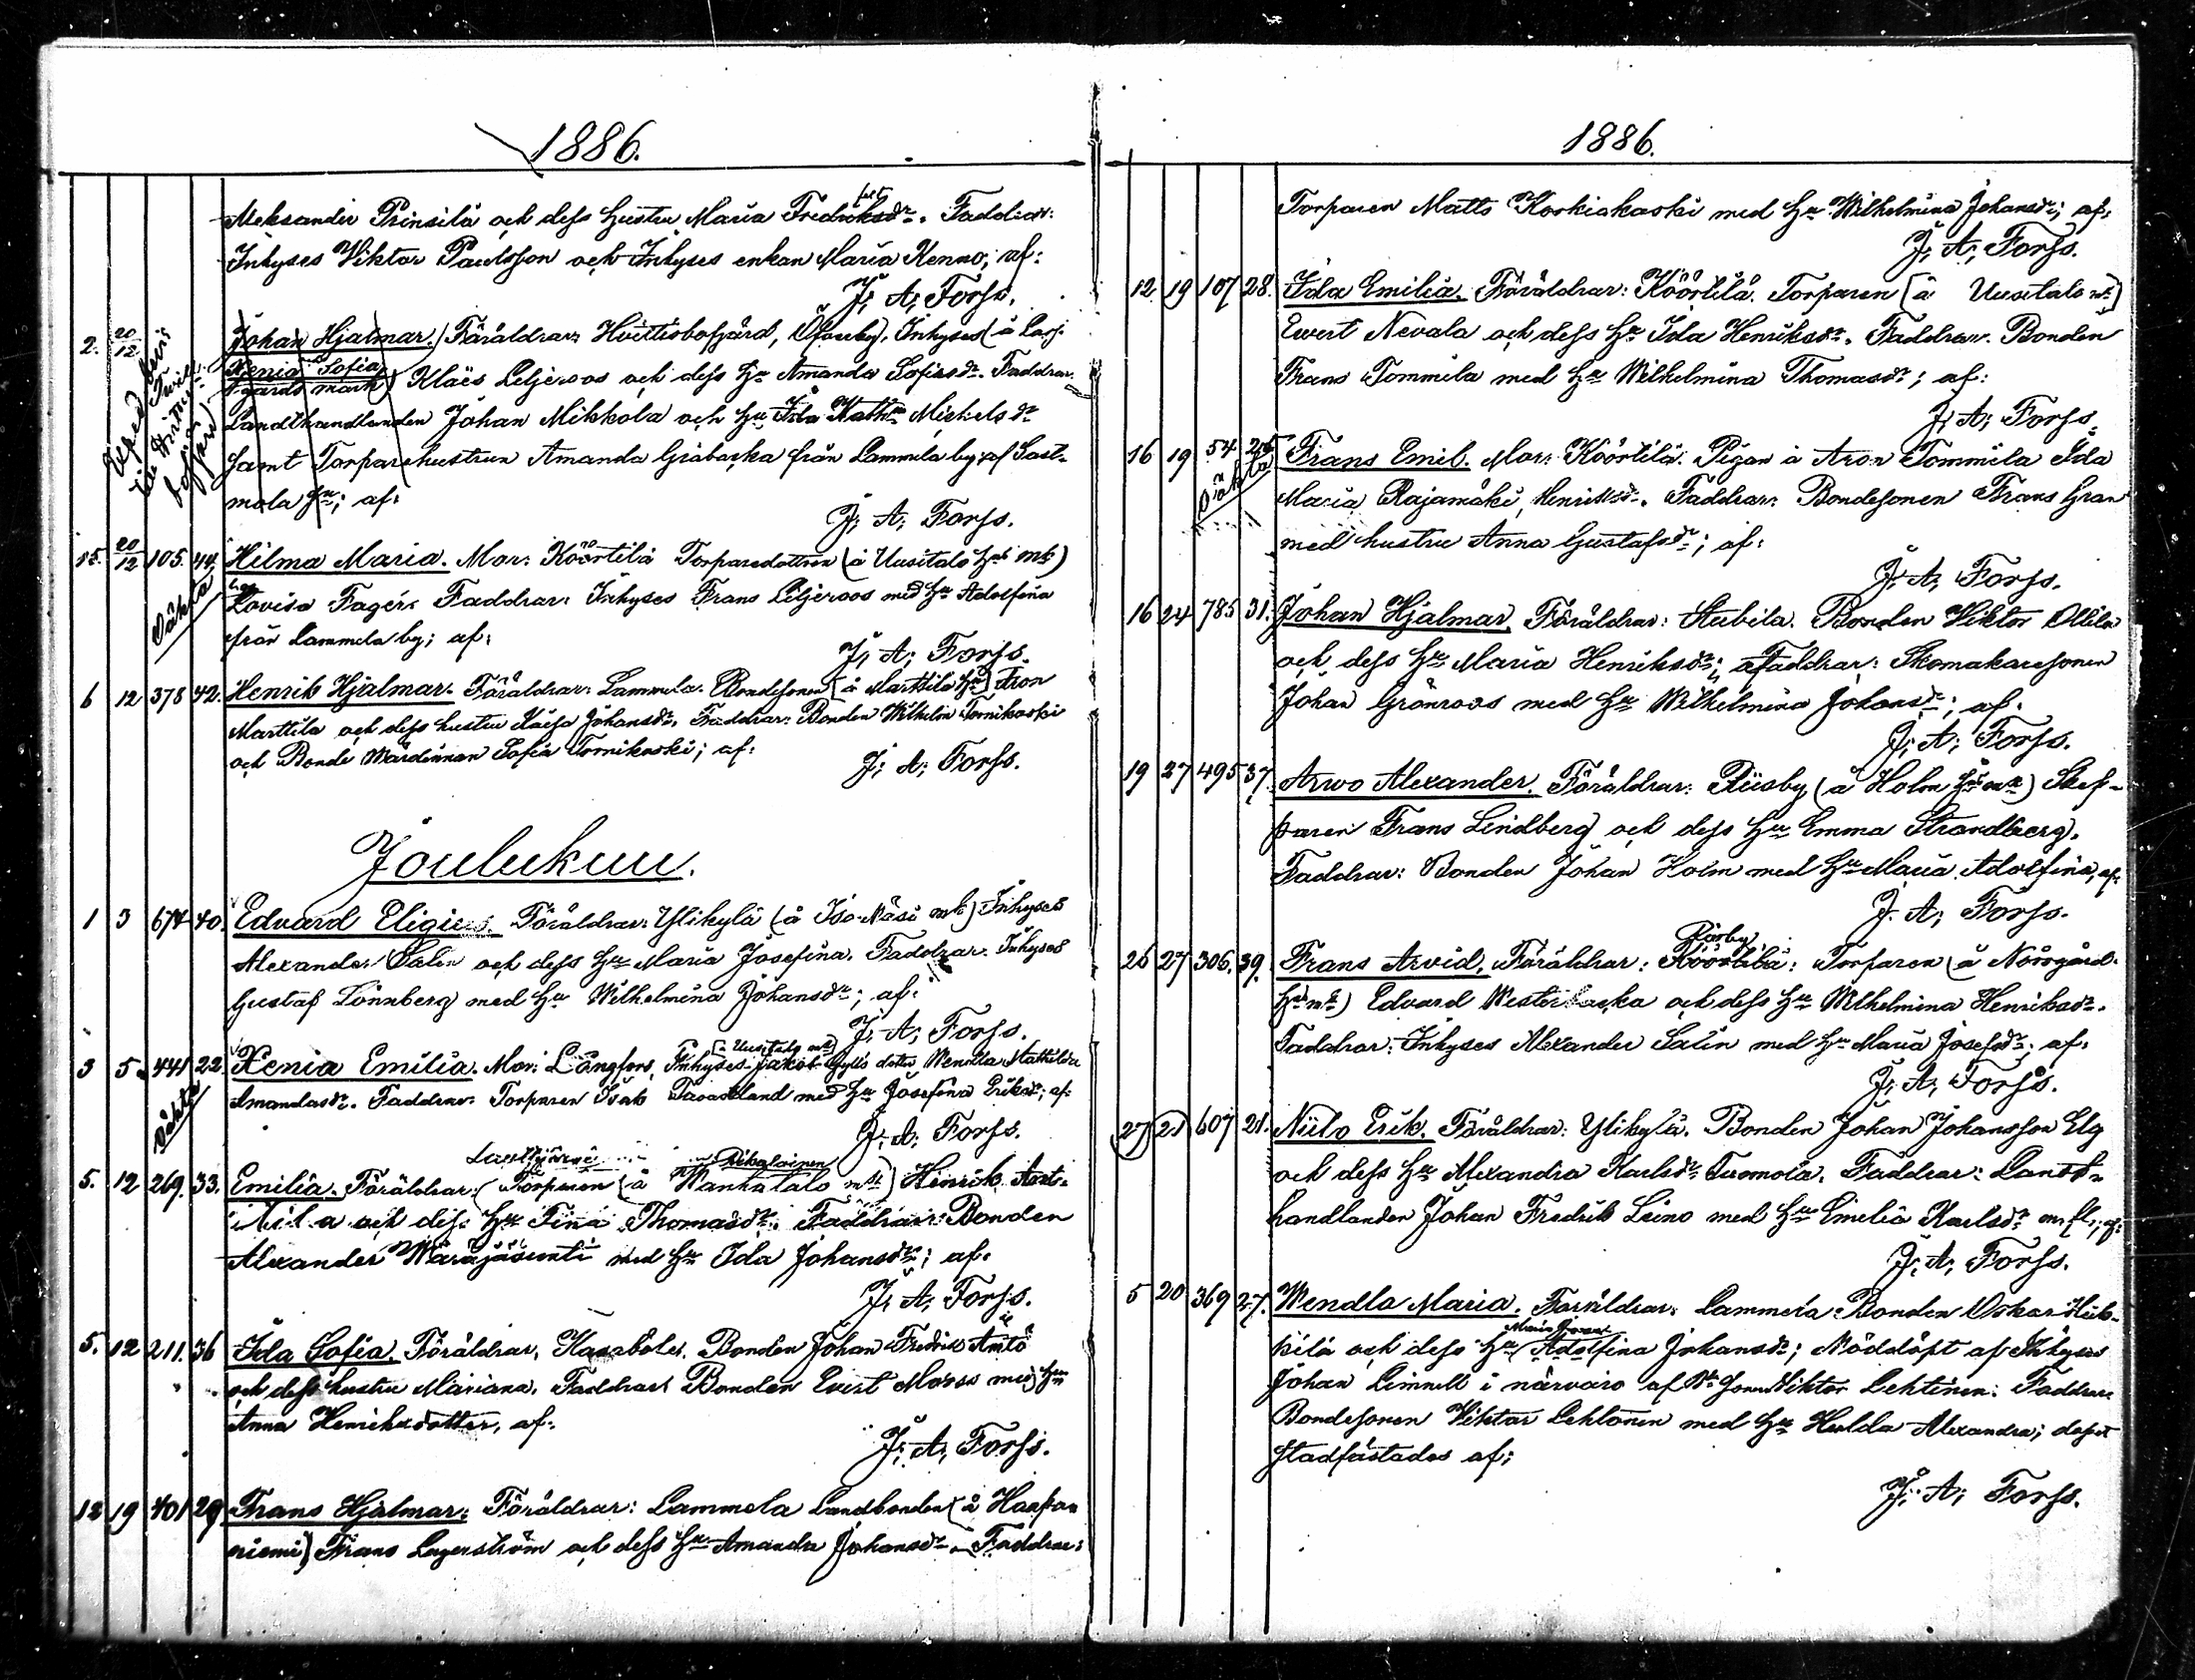 1886.
Aleksander Prinsilä och dess hustru Maria Fredriksdr. Faddrar:
Inhyses Viktor Paulsson och Inhyses enkan Maria Kenno; af:
J. A. Forss.
2. 20/12 Johan Hjalmar. Föräldrar: Hvittisbofjärd, Inhyses (å
Xenia Sofia
Klaës Liljeroos och dess Hu Amanda Sofiasdr. Faddrar:
Landthandlanden Johan Mikkola och Hu Ida Kath. Mickelsdr
samt Torparehustrun Amanda Gråbacka från Lammela by; af Sast-
mola; af:
J. A. Forss.
15. 20/12 105. 44. Hilma Maria. Mor: Köörtilä Torparedottren (å Uusitalo Hs mk)
Oäkta Lovisa Fager. Faddrar: Inhyses Frans Liljeroos med Hu Adolfina
från Lammela by; af:
J. A. Forss.
6 12 378 42. Henrik Hjalmar. Föräldrar: Lammela. Bondesonen (å Marttila Hn) Aron
Marttila och dess hustru Kaisa Johansdr. Faddrar: Bonden Wilhelm Tornikoski
och Bonde Wärdinnan Sofia Tornikoski; af:
J. A. Forss.
Joulukuu.
1 3 674 40. Edvard Eligius. Föräldrar: Ylikylä (å Iso-Näsi mk) Inhyses
Alexander Salin och dess Hu Maria Josefina. Faddrar: Inhyses
Gustaf Lönnberg med Hu Wilhelmina Johansdr; af:
J. A. Forss.
(å Uusitalo mk)
3 5 441 22 Xenia Emilia. Mor: Långfors, Inhyses Jakob Gylls dotter Wendla Mathilda
Oäkta Amandasdr. Faddrar: Torparen Isak Tavastland med Hu Josefina Eriksdr; af:
J. A. Forss.
5. 12 269. 33. Emilia. Föräldrar: Torparen (å Wanhatalo mk) Hinrik
och dess Hu Fina Thomasdr. Faddrar: Bonden
Alexander Waräjäsunti med Hu Ida Johansdr; af:
J. A. Forss.
5. 12 211. 36 Ida Sofia. Föräldrar: Kasaböle. Bonden Johan Fredrik Anttö
och dess hustru Mariana. Faddrar: Bonden Evert Moss med Hu
Anna Henriksdotter, af:
J. A. Forss.
12 19 401 29 Frans Hjalmar. Föräldrar: Lammela Landbonden (å Haapa
niemi) Frans Lagerström och dess Hu Amanda Johansdr. Faddrar:
1886.
Torparen Matts Koskiakoski med Hu Wilhelmina Johansdr; af:
J. A. Forss.
12 19 107 28. Ida Emilia. Föräldrar: Köörtilä. Torparen (å Uusitalo mk)
Evert Nevala och dess Hu Ida Henriksdr. Faddrar: Bonden
Frans Tommila med Hu Wilhelmina Thomasdr; af:
J. A. Forss.
16 19 54 25 Frans Emil. Mor: Köörtilä. Pigan å Aron Tommila Ida
Oäkta Maria Rajamäki, Henriksdr. Faddrar: Bondesonen Frans Gran
med hustru Anna Gustafsdr; af:
J. A. Forss.
16 24 785 31. Johan Hjalmar. Föräldrar: Stubila. Bonden Viktor Ollila
och dess Hu Maria Henriksdr; Faddrar: Skomakaresonen
Johan Grönroos med Hu Wilhelmina Johansdr; af:
J. A. Forss.
19 27 495 37 Arwo Alexander. Föräldrar: Riisby (å Holm Hs mk) Skep-
paren Frans Lindberg och dess Hu Emma Strandberg.
Faddrar: Bonden Johan Holm med Hu Maria Adolfina, af:
J. A. Forss.
26 27 306. 39. Frans Arvid. Föräldrar: Köörtilä: Torparen (å Norrgård
Hs mk) Edvard Westerbacka och dess Hu Wilhelmina Henriksdr.
Faddrar: Inhyses Alexander Salin med Hu Maria Josefsdr; af:
J. A. Forss.
27 21 607 21. Niilo Erik. Föräldrar: Ylikylä. Bonden Johan Johansson Elg
och dess Hu Alexandra Karlsdr Tuomola. Faddrar: Landt-
handlanden Johan Fredrik Leino med Hu Emelia Karlsdr m. fl.; af:
J. A. Forss.
5 20 369 27. Wendla Maria. Föräldrar: Lammela Bonden Oskar
pilä och dess Hu Adolfina Johansdr; Nöddöpt af Inhyses
Johan Limnell i närvaro af Viktor Lehtinen. Faddrar:
Bondesonen Viktor Lehtonen med Hu Hulda Alexandra; dopet
stadfästades af:
J. A. Forss.